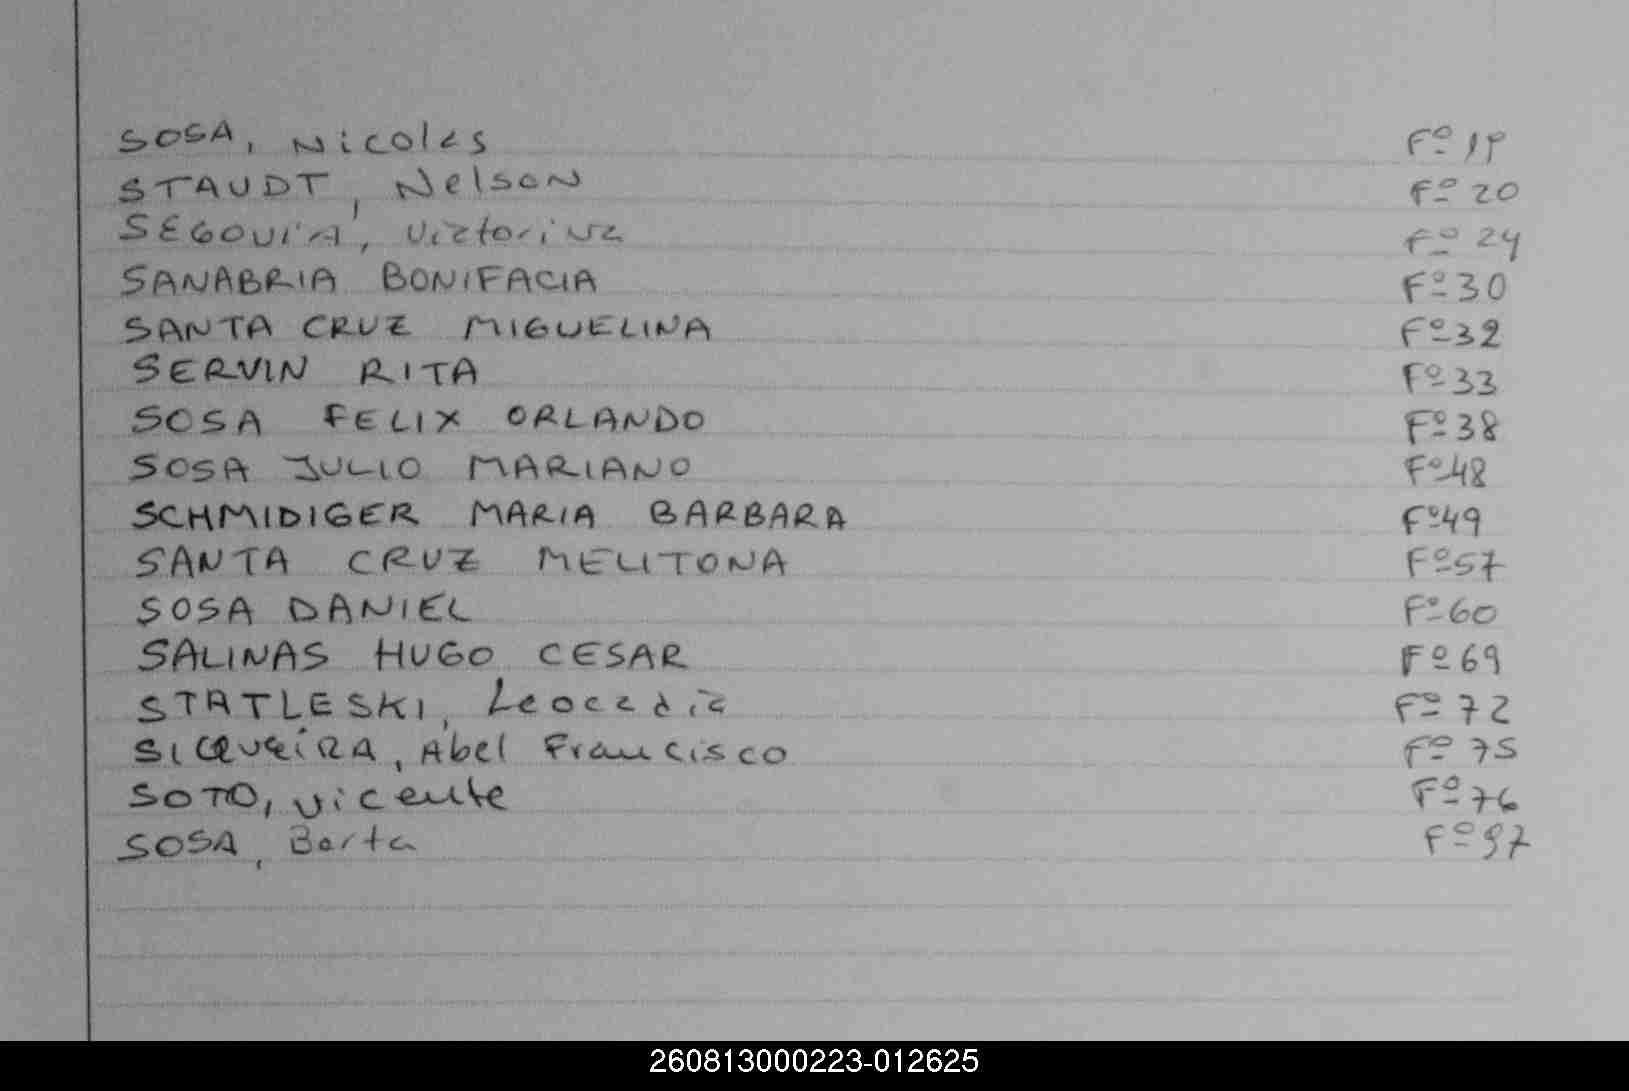 SOSA, Nicolas Fº 19
STAUDT, Nelson Fº 20
SEGOVIA, Victorina Fº 24
SANABRIA BONIFACIA Fº 30
SANTA CRUZ MIGUELINA Fº 32
SERVIN RITA Fº 33
SOSA FELIX ORLANDO Fº 38
SOSA JULIO MARIANO Fº 48
SCHMIDIGER MARIA BARBARA Fº 49
SANTA CRUZ MELITONA Fº 57
SOSA DANIEL Fº 60
SALINAS HUGO CESAR Fº 69
STATLESKI, Leocadia Fº 72
SICQUEIRA, Abel Francisco Fº 75
SOTO, Vicente Fº 76
SOSA, Berta Fº 97
260813000223-012625